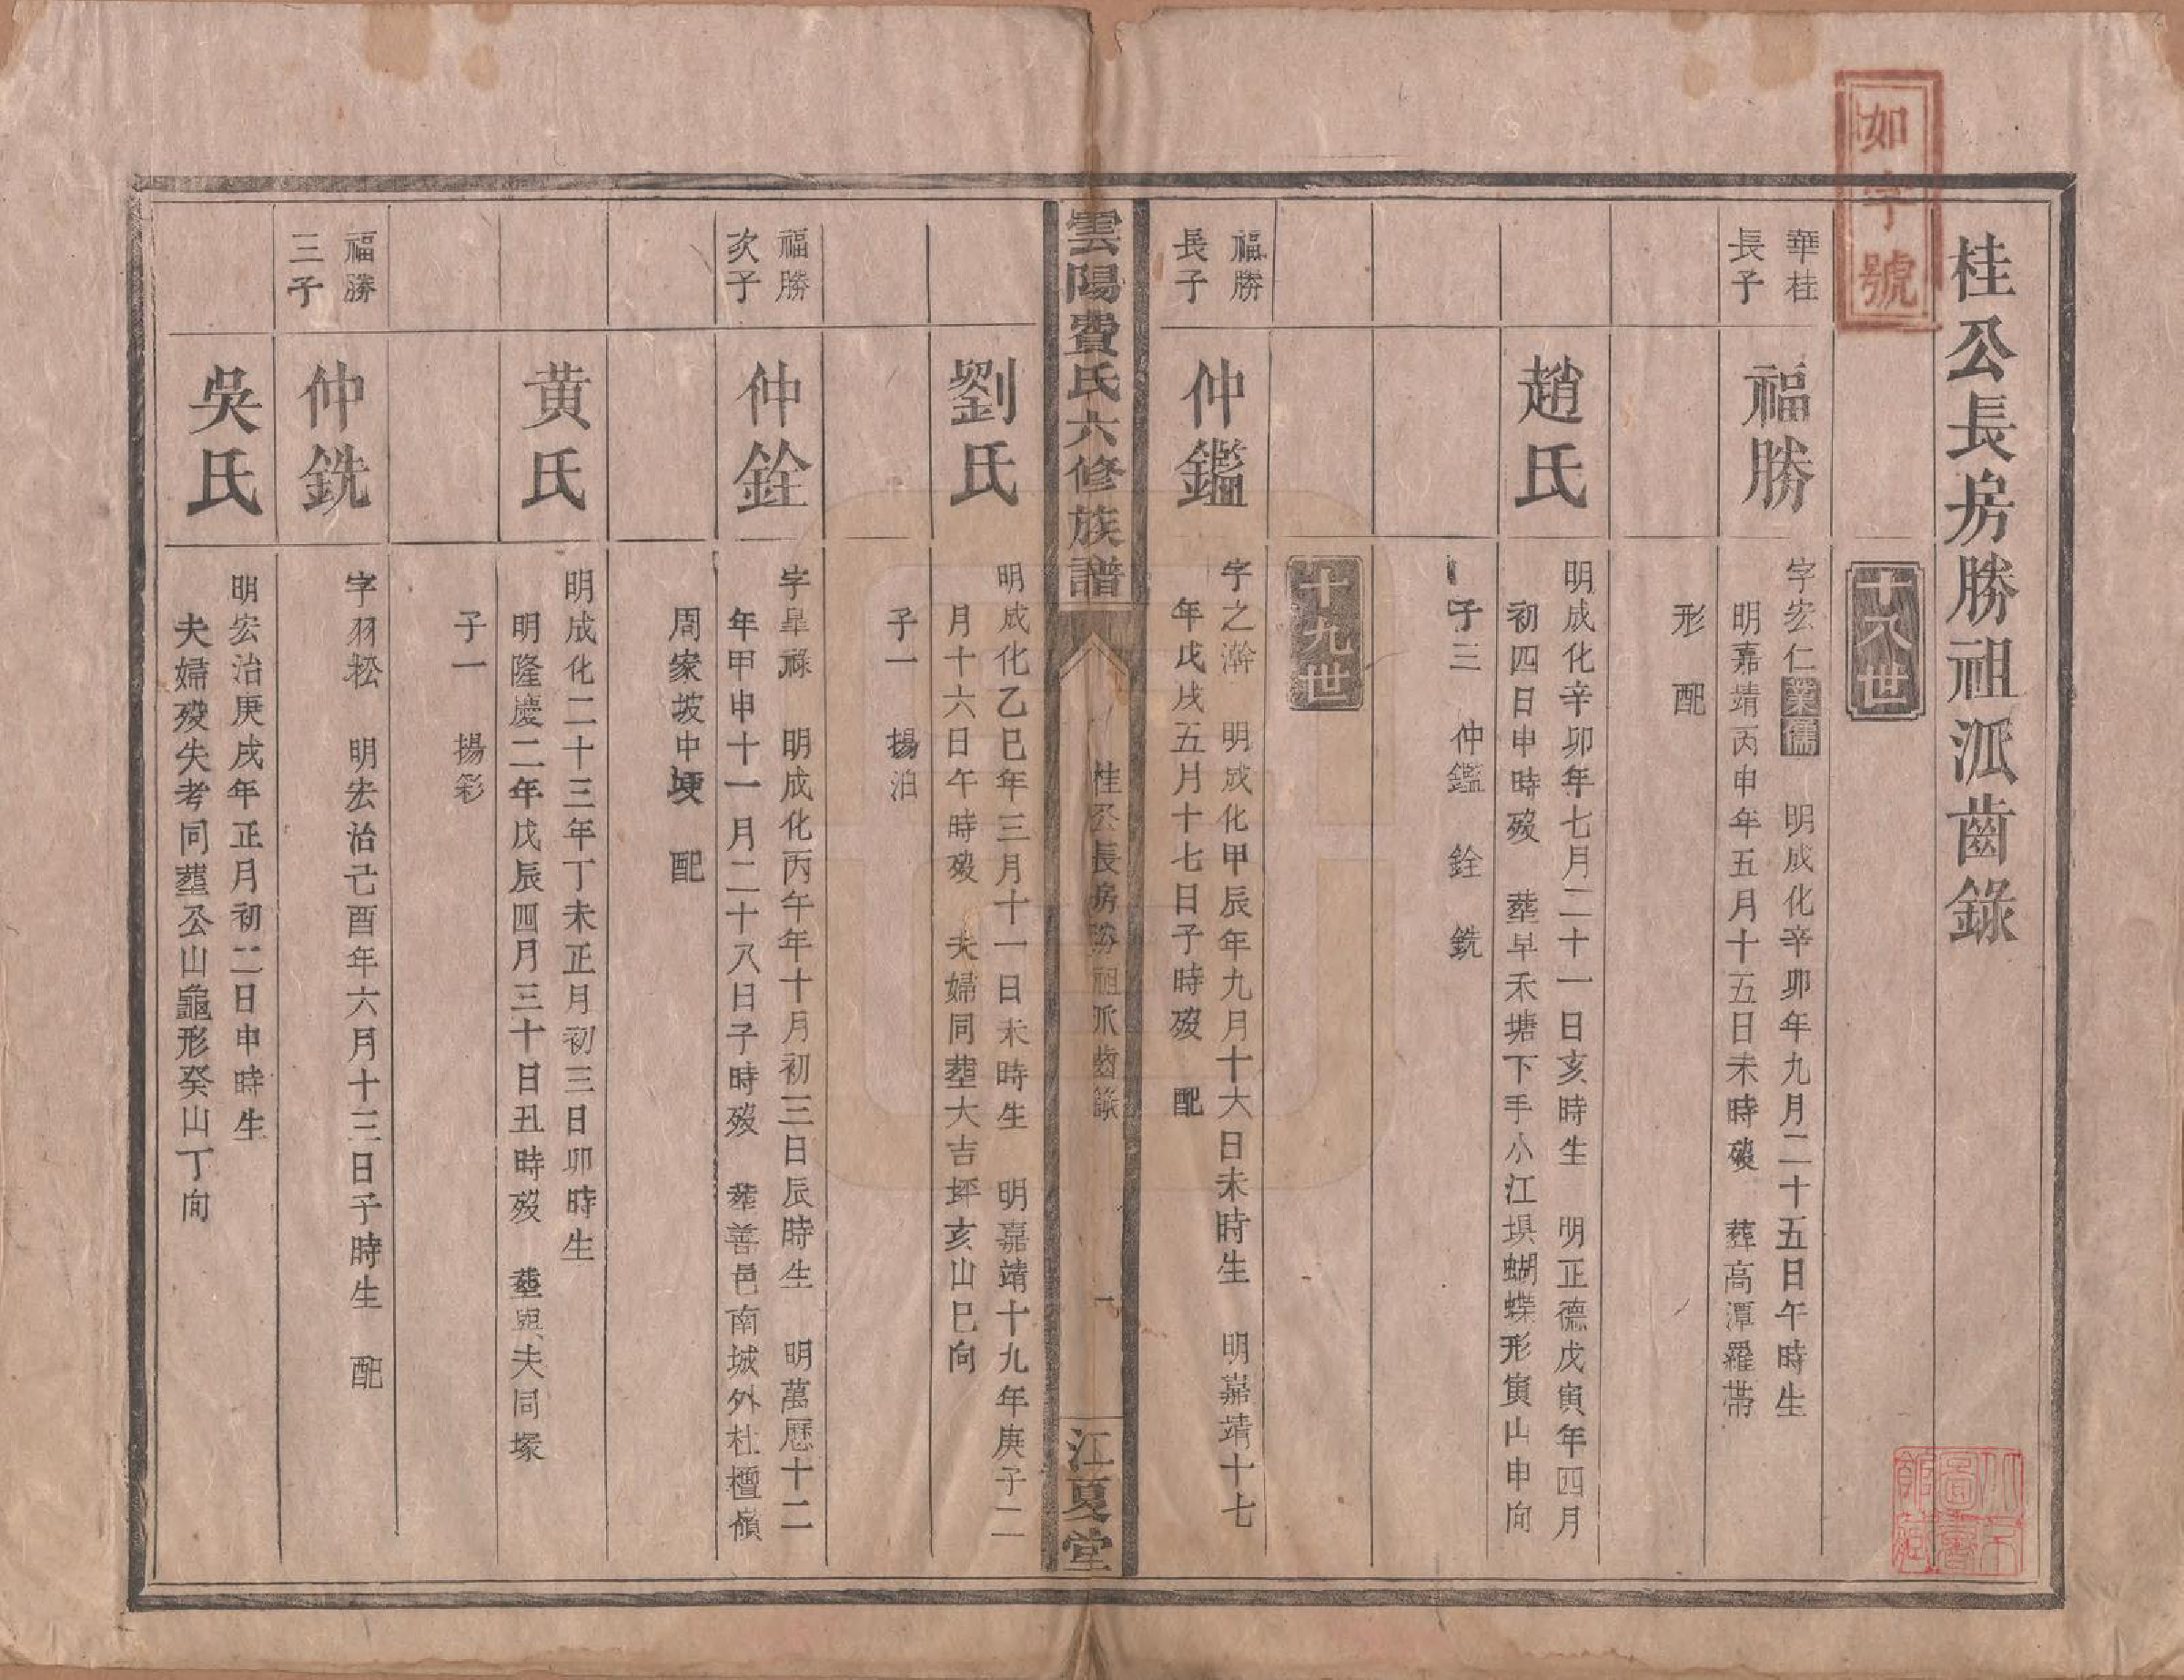 如字號
桂公長房勝祖派齒錄
十八世
華桂
長子
福勝
字宏仁業儒 明成化辛卯年九月二十五日午時生
明嘉靖丙申年五月十五日未時歿 葬高潭羅帶
形 配
趙氏
明成化辛卯年七月二十一日亥時生 明正德戊寅年四月
初四日申時歿 葬早禾塘下手小江垻蝴蝶形寅山申向
子三 仲鑑 銓 銑
十九世
福勝
長子
仲鑑
字之澣 明成化甲辰年九月十六日未時生 明嘉靖十七
年戊戌五月十七日子時歿 配
雲陽費氏六修族譜
桂公長房勝祖派齒錄
一
江夏堂
劉氏
明成化乙巳年三月十一日未時生 明嘉靖十九年庚子二
月十六日午時歿 夫婦同塟大吉坪亥山巳向
子一 揚泊
福勝
次子
仲銓
字皐祿 明成化丙午年十月初三日辰時生 明萬歷十二
年甲申十一月二十八日子時歿 塟善邑南城外杜檀嶺
周家坡中埂 配
黄氏
明成化二十三年丁未正月初三日卯時生
明隆慶二年戊辰四月三十日丑時歿 塟與夫同塚
子一 揚彩
福勝
三子
仲銑
字羽松 明宏治己酉年六月十三日子時生 配
吳氏
明宏治庚戌年正月初二日申時生
夫婦歿失考同塟公山龜形癸山丁向